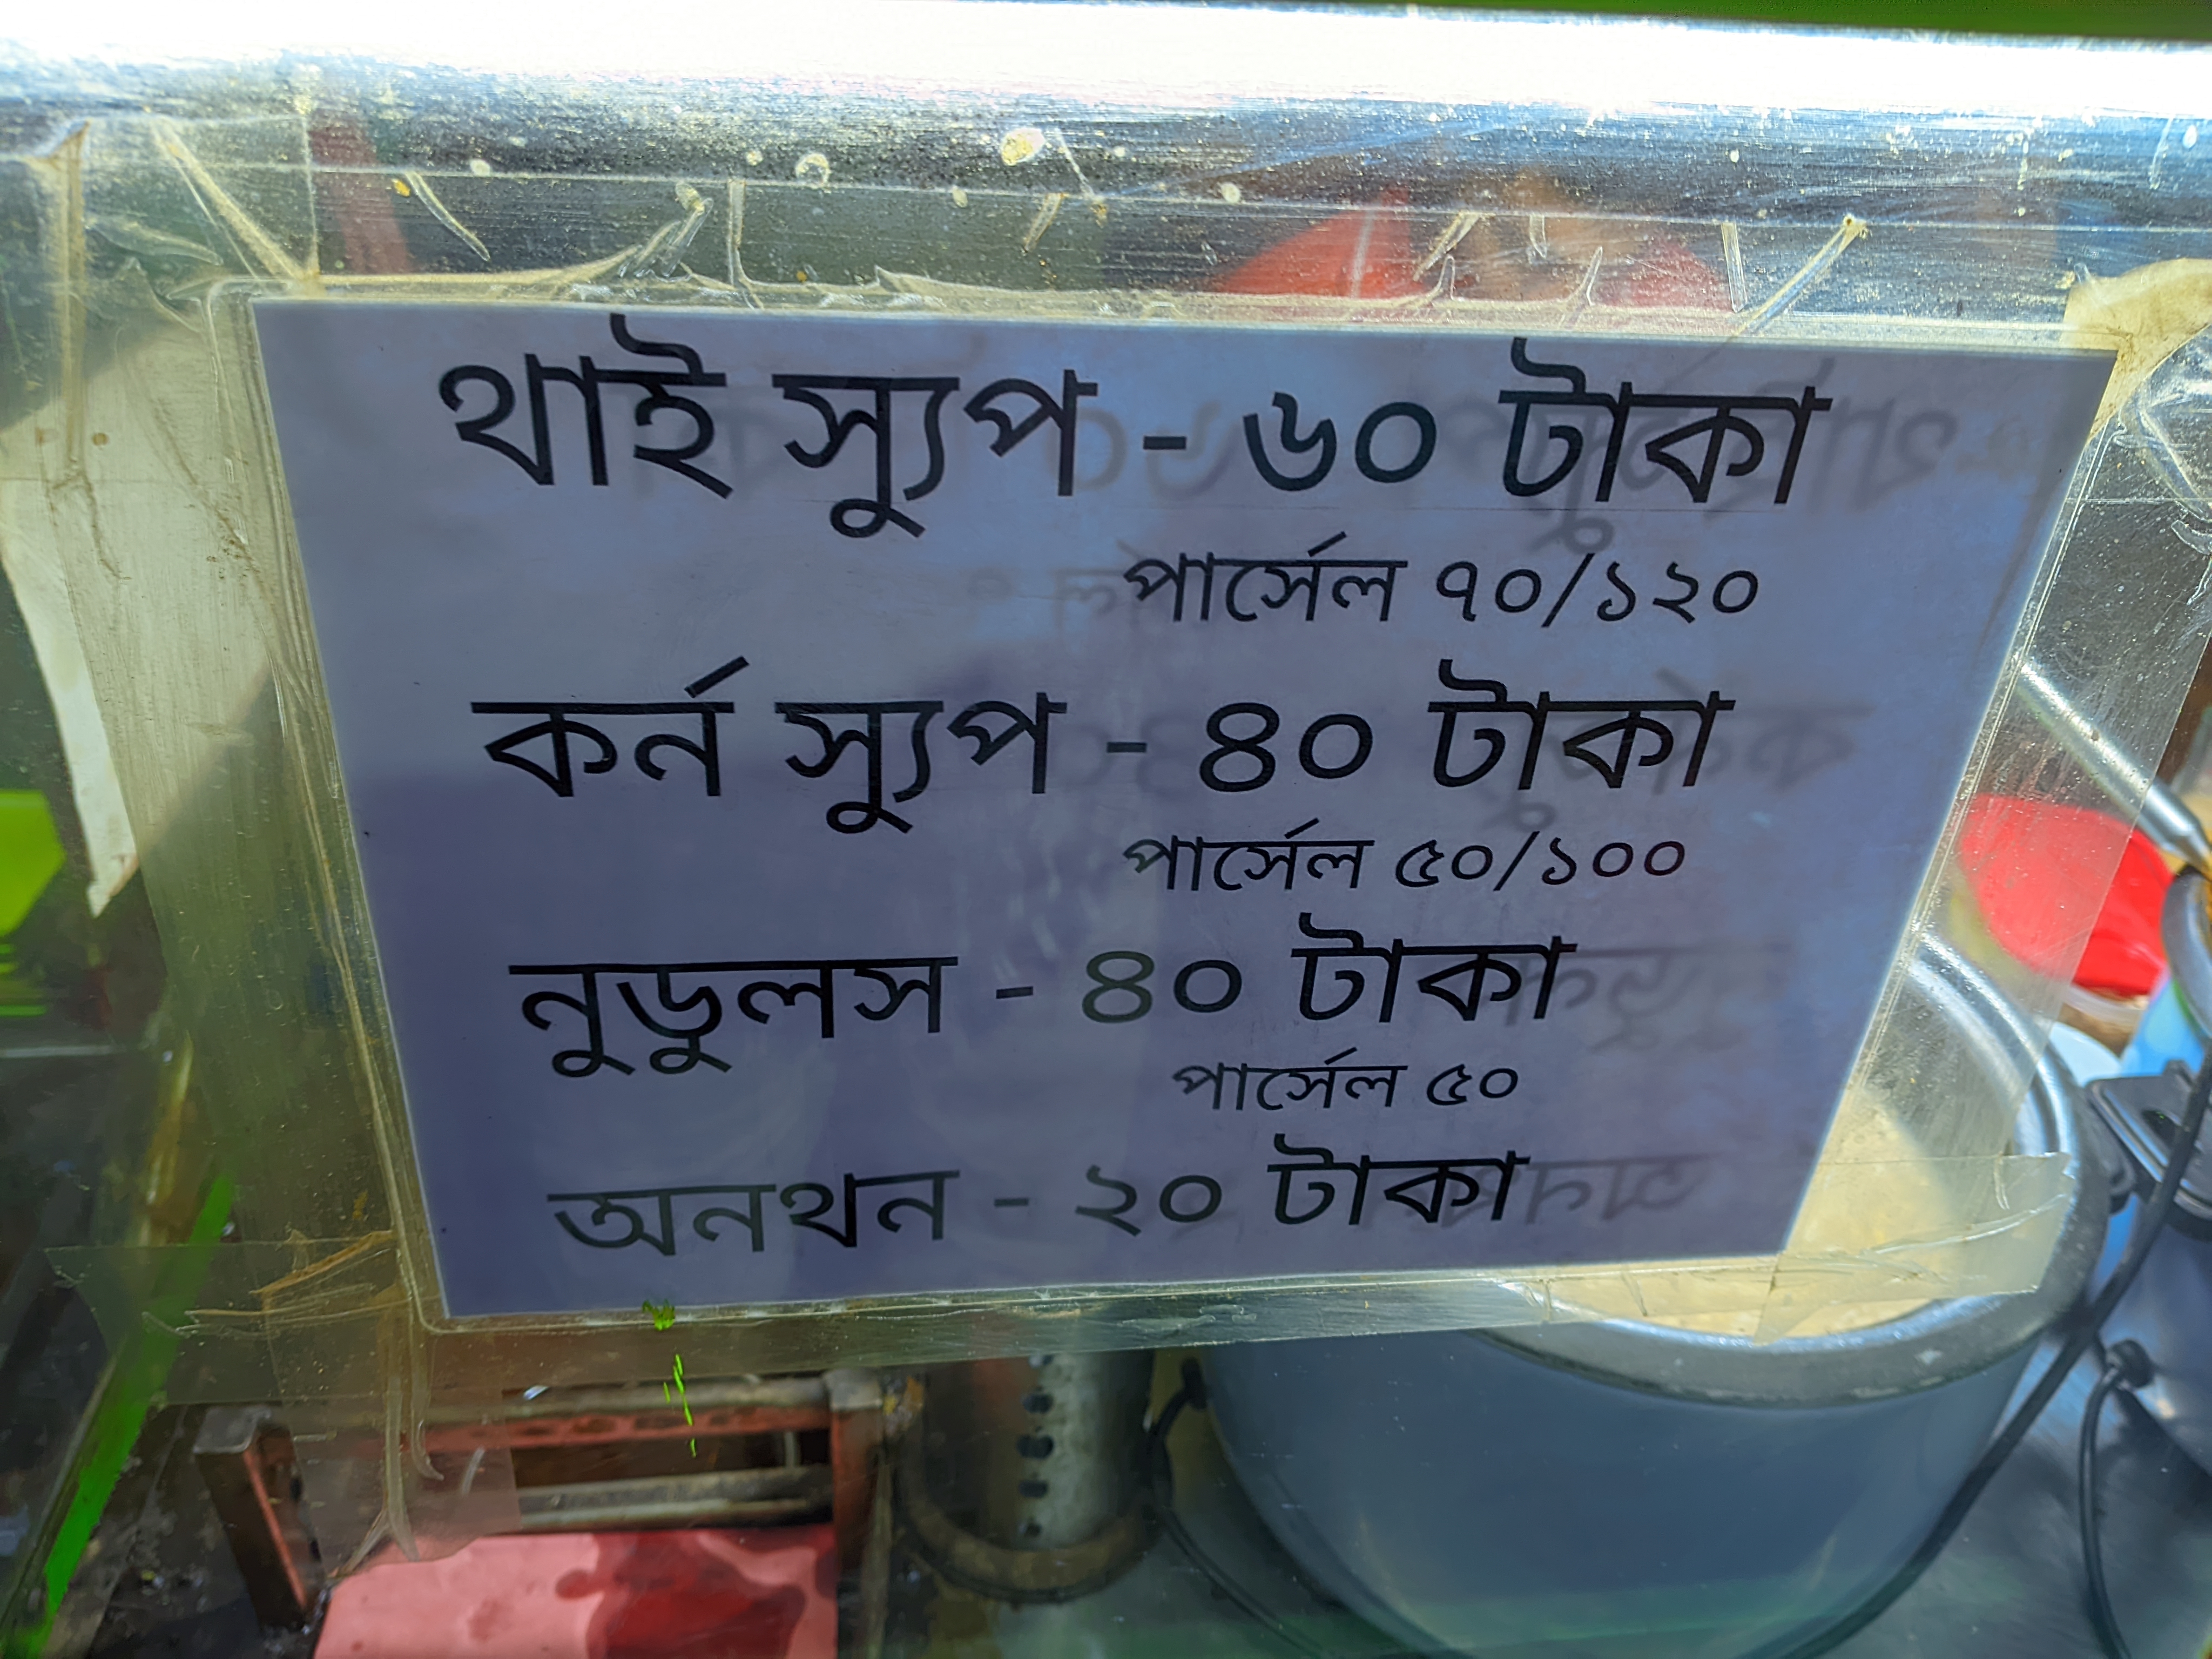 থাই স্যুপ - ৬০ টাকা
পার্সেল ৭০/১২০
কর্ন স্যুপ - ৪০ টাকা
পার্সেল ৫০/১০০
নুডুলস - ৪০ টাকা
পার্সেল ৫০
অনথন - ২০ টাকা